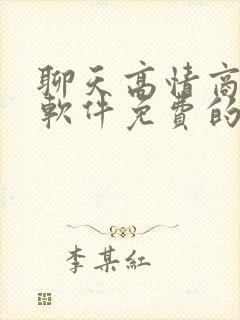 聊天高情商
軟件免費的
李某紅